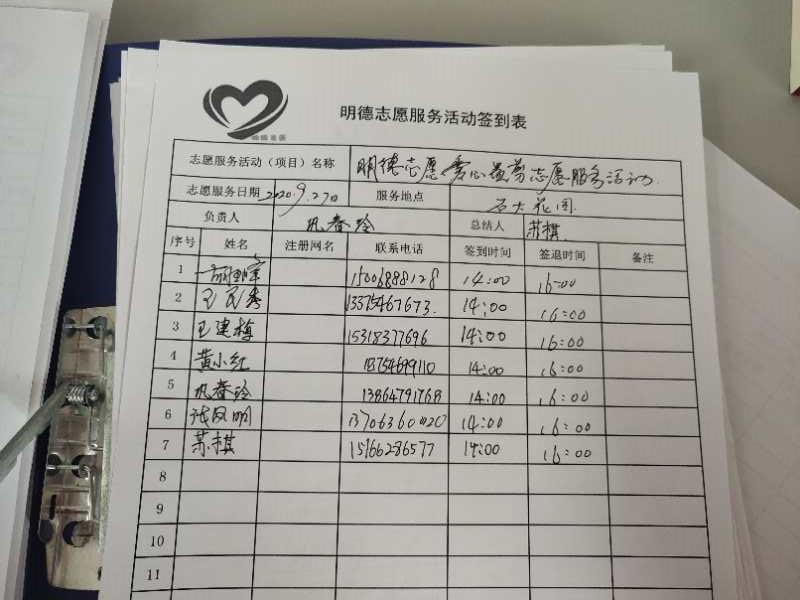 明德志愿服务活动签到表
志愿服务活动（项目）名称 明德志愿爱心义剪志愿服务活动
志愿服务日期 2020.9.27日 服务地点 石大花园
负责人 巩春玲 总结人 苏棋
序号 姓名 注册网名 联系电话 签到时间 签退时间 备注
1 15006888128 14:00 16:00
2 王民秀 13375467673 14:00 16:00
3 王建梅 15318377696 14:00 16:00
4 黄小红 18754699110 14:00 16:00
5 巩春玲 13864791768 14:00 16:00
6 张凤明 14:00 16:00
7 苏棋 15166286577 14:00 16:00
8
9
10
11